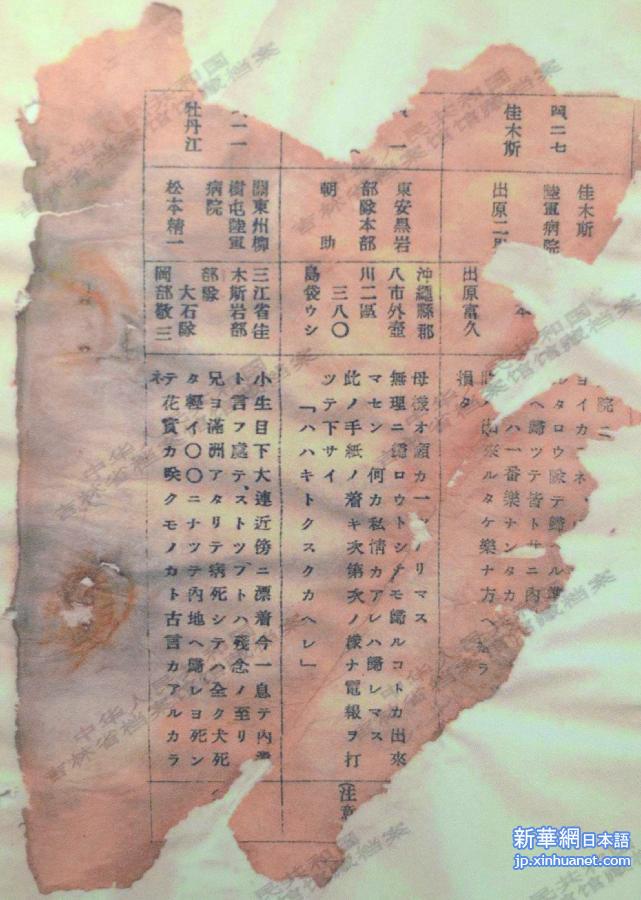 四二七
佳木斯
佳木斯
陸軍病院
出原二
本
出原富久
院ニ
ヨイカ ネ、
ルタロウ歐テ歸 ル準
ヘ歸ツテ皆トサニ內
ハ一番樂ナンタカ
出來ルタケ樂ナ方ヘ カラ
損タ
一
東安黑岩
部隊本部
朝助
沖繩縣郡
八市外壺
川二區
三八〇
島袋ウシ
母樣オ願カ一ツアリマス
無理ニ歸ロウトシテモ歸ルコトカ出來
マセン 何カ私情カアレハ歸レマス
此ノ手紙ノ着キ次第次ノ樣ナ電報ヲ打
ツテ下サイ
「ハハキトクスクカヘレ」
(注意
二一
牡丹江
關東州柳
樹屯陸軍
病院
松本精一
三江省佳
木斯岩部
部隊
大石隊
岡部敬三
小生目下大連近傍ニ漂着今一息テ內
ト言フ處テ、ストツプトハ殘念ノ至リ
兄ヨ滿洲アタリテ病死シテハ全ク犬死
タ輕イ〇〇ニナツテ內地ヘ歸レヨ死ン
テ花實カ咲クモノカト古言カアルカラ
ネ
中华人民共和国
吉林省档案馆馆藏档案
新華網日本語
jp.xinhuanet.com